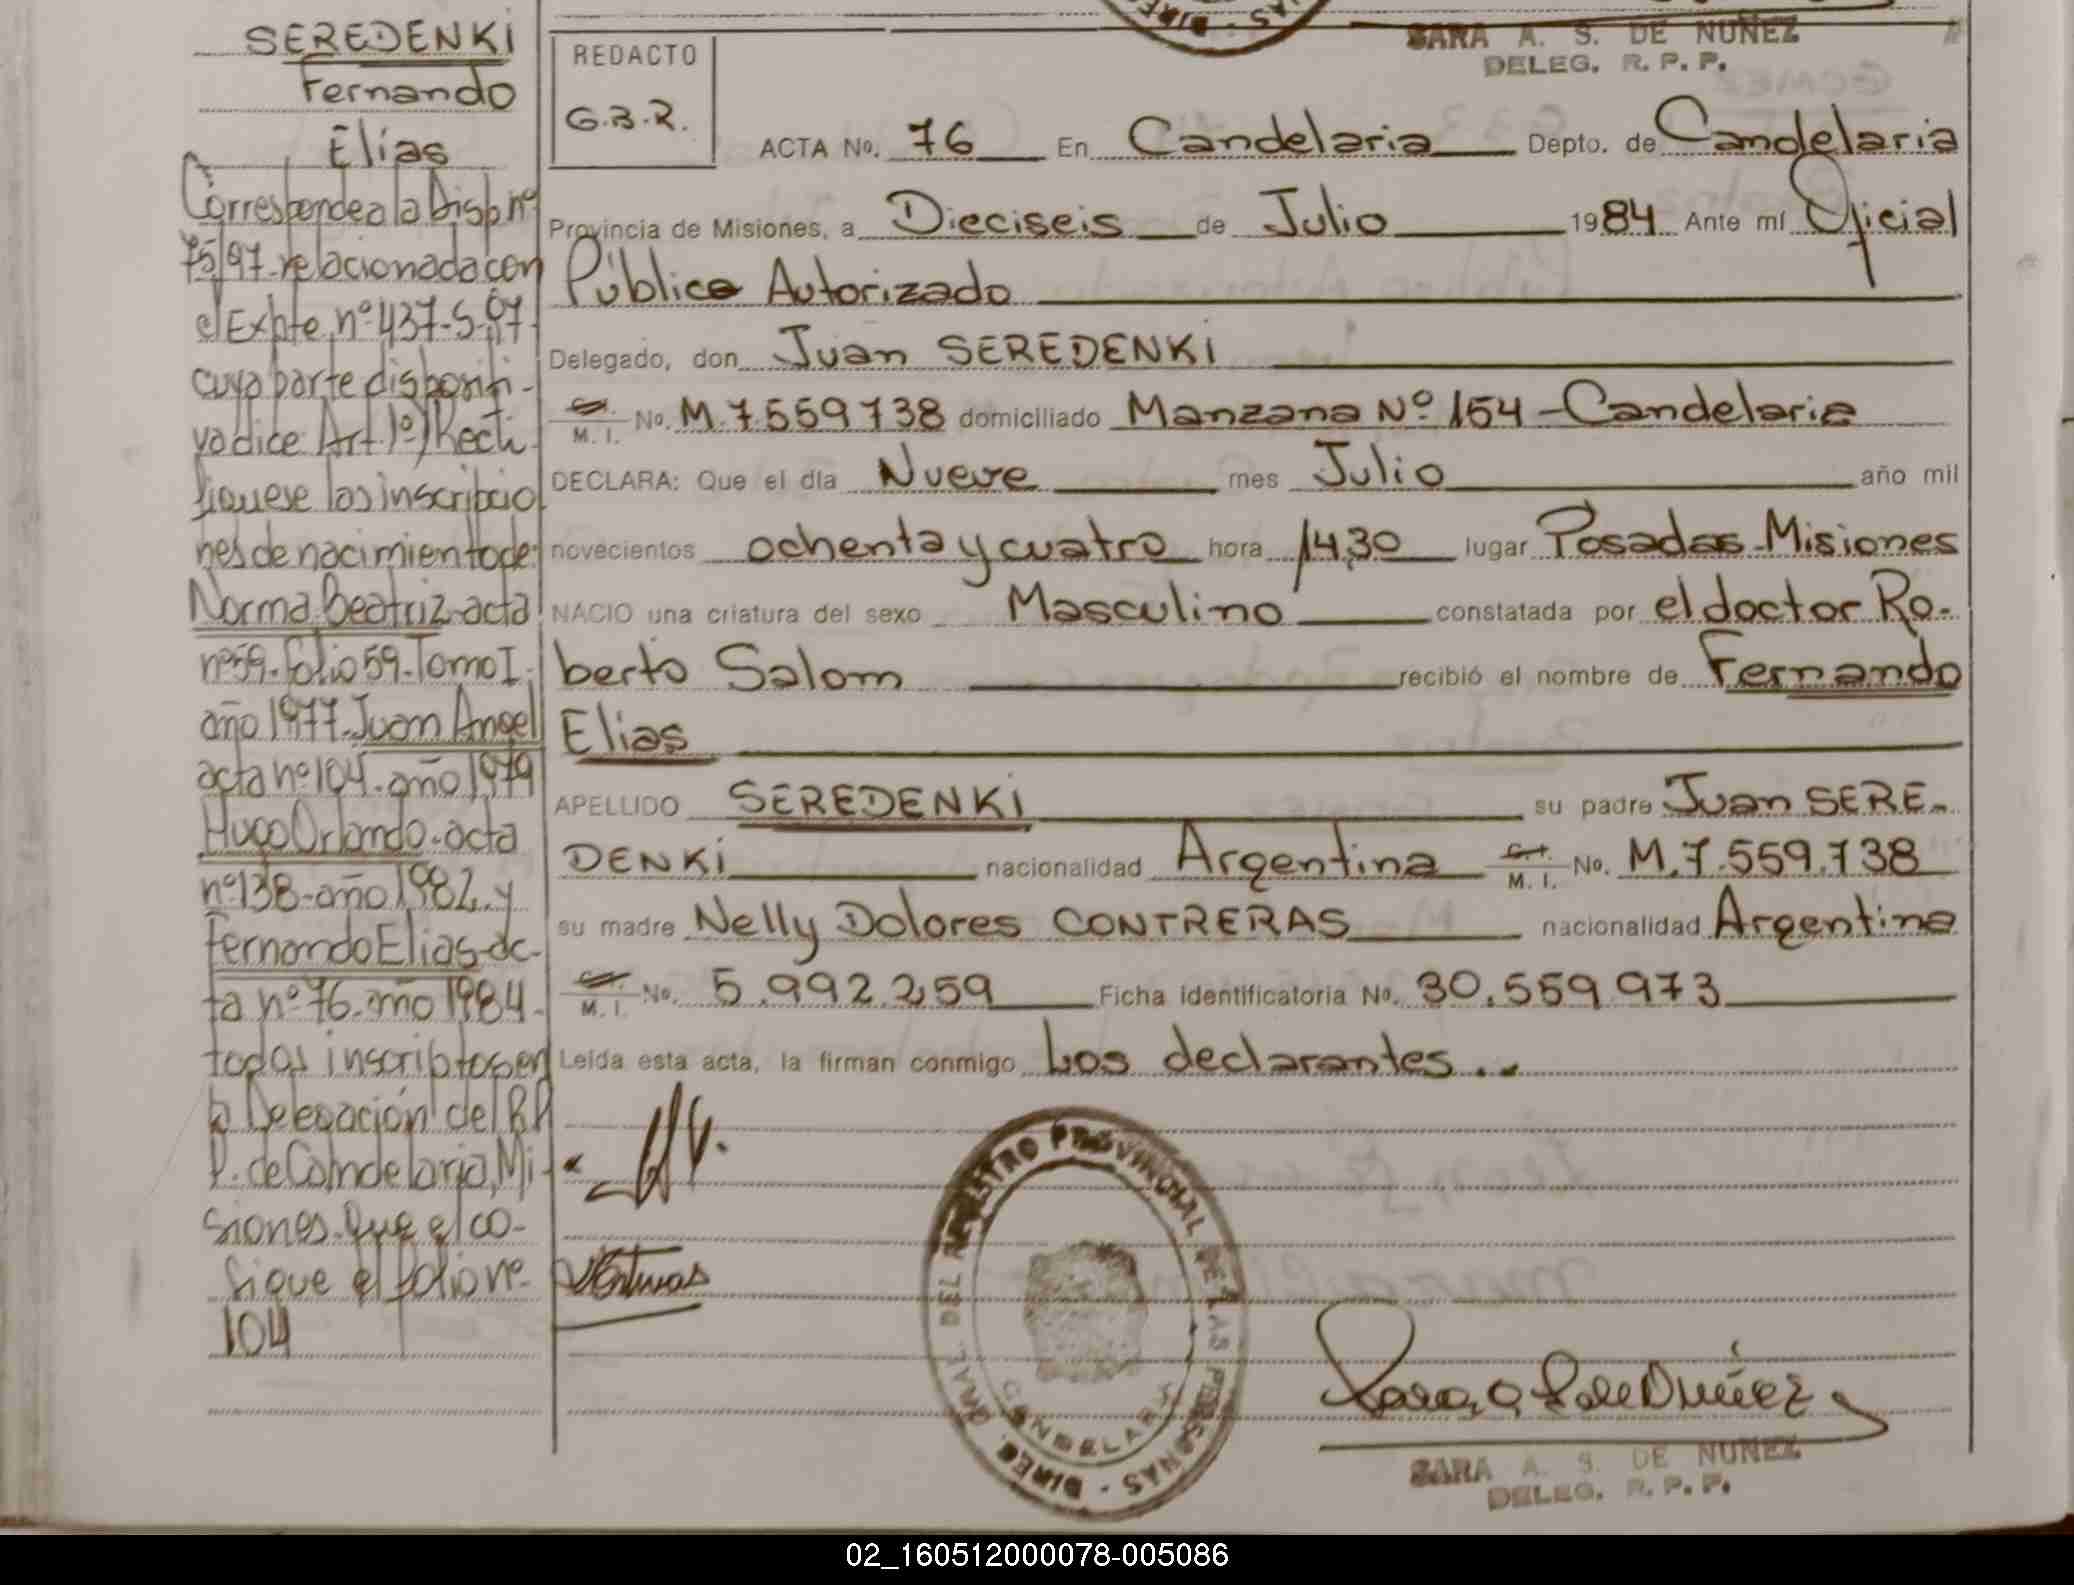 SARA A. S. DE NUÑEZ
DELEG. R. P. P.
SEREDENKI
Fernando
Elías
Corresponde a la Disp. nº
75/97 - relacionada con
el Expte. nº 437-S-97.
cuya parte dispositi-
va dice Art. 1º) Recti-
fíquese las inscripcio
nes de nacimiento de:
Norma Beatriz - acta
nº 59 - folio 59 - Tomo I -
año 1977 - Juan Angel
acta nº 104 - año 1979
Hugo Orlando - acta
nº 138 - año 1982 y
Fernando Elias - ac-
ta nº 76 - año 1984 -
todas inscriptos en
la Delegación del R.P.
P. de Candelaria, Mi-
siones. que el co-
Sigue el folio nº
104
REDACTO
G.B.R.
ACTA No. 76 En Candelaria Depto. de Candelaria
Provincia de Misiones, a Dieciseis de Julio 1984 Ante mí Oficial
Público Autorizado
Delegado, don Juan SEREDENKI
M. I. No. M.7559738 domiciliado Manzana Nº 154 - Candelaria
DECLARA: Que el día Nueve mes Julio año mil
novecientos ochenta y cuatro hora 14,30 lugar Posadas - Misiones
NACIO una criatura del sexo Masculino constatada por el doctor Ro-
berto Salom recibió el nombre de Fernando
Elias
APELLIDO SEREDENKI su padre Juan SERE-
DENKI nacionalidad Argentina M. I. No. M.7.559.738
su madre Nelly Dolores CONTRERAS nacionalidad Argentina
M. I. No. 5.992.259 Ficha identificatoria No. 30.559.973
Leída esta acta, la firman conmigo Los declarantes..
REGISTRO PROVINCIAL DE LAS PERSONAS - DIREC. GRAL. DEL
CANDELARIA
Sara A. S. de Nuñez
SARA A. S. DE NUÑEZ
DELEG. R. P. P.
02_160512000078-005086